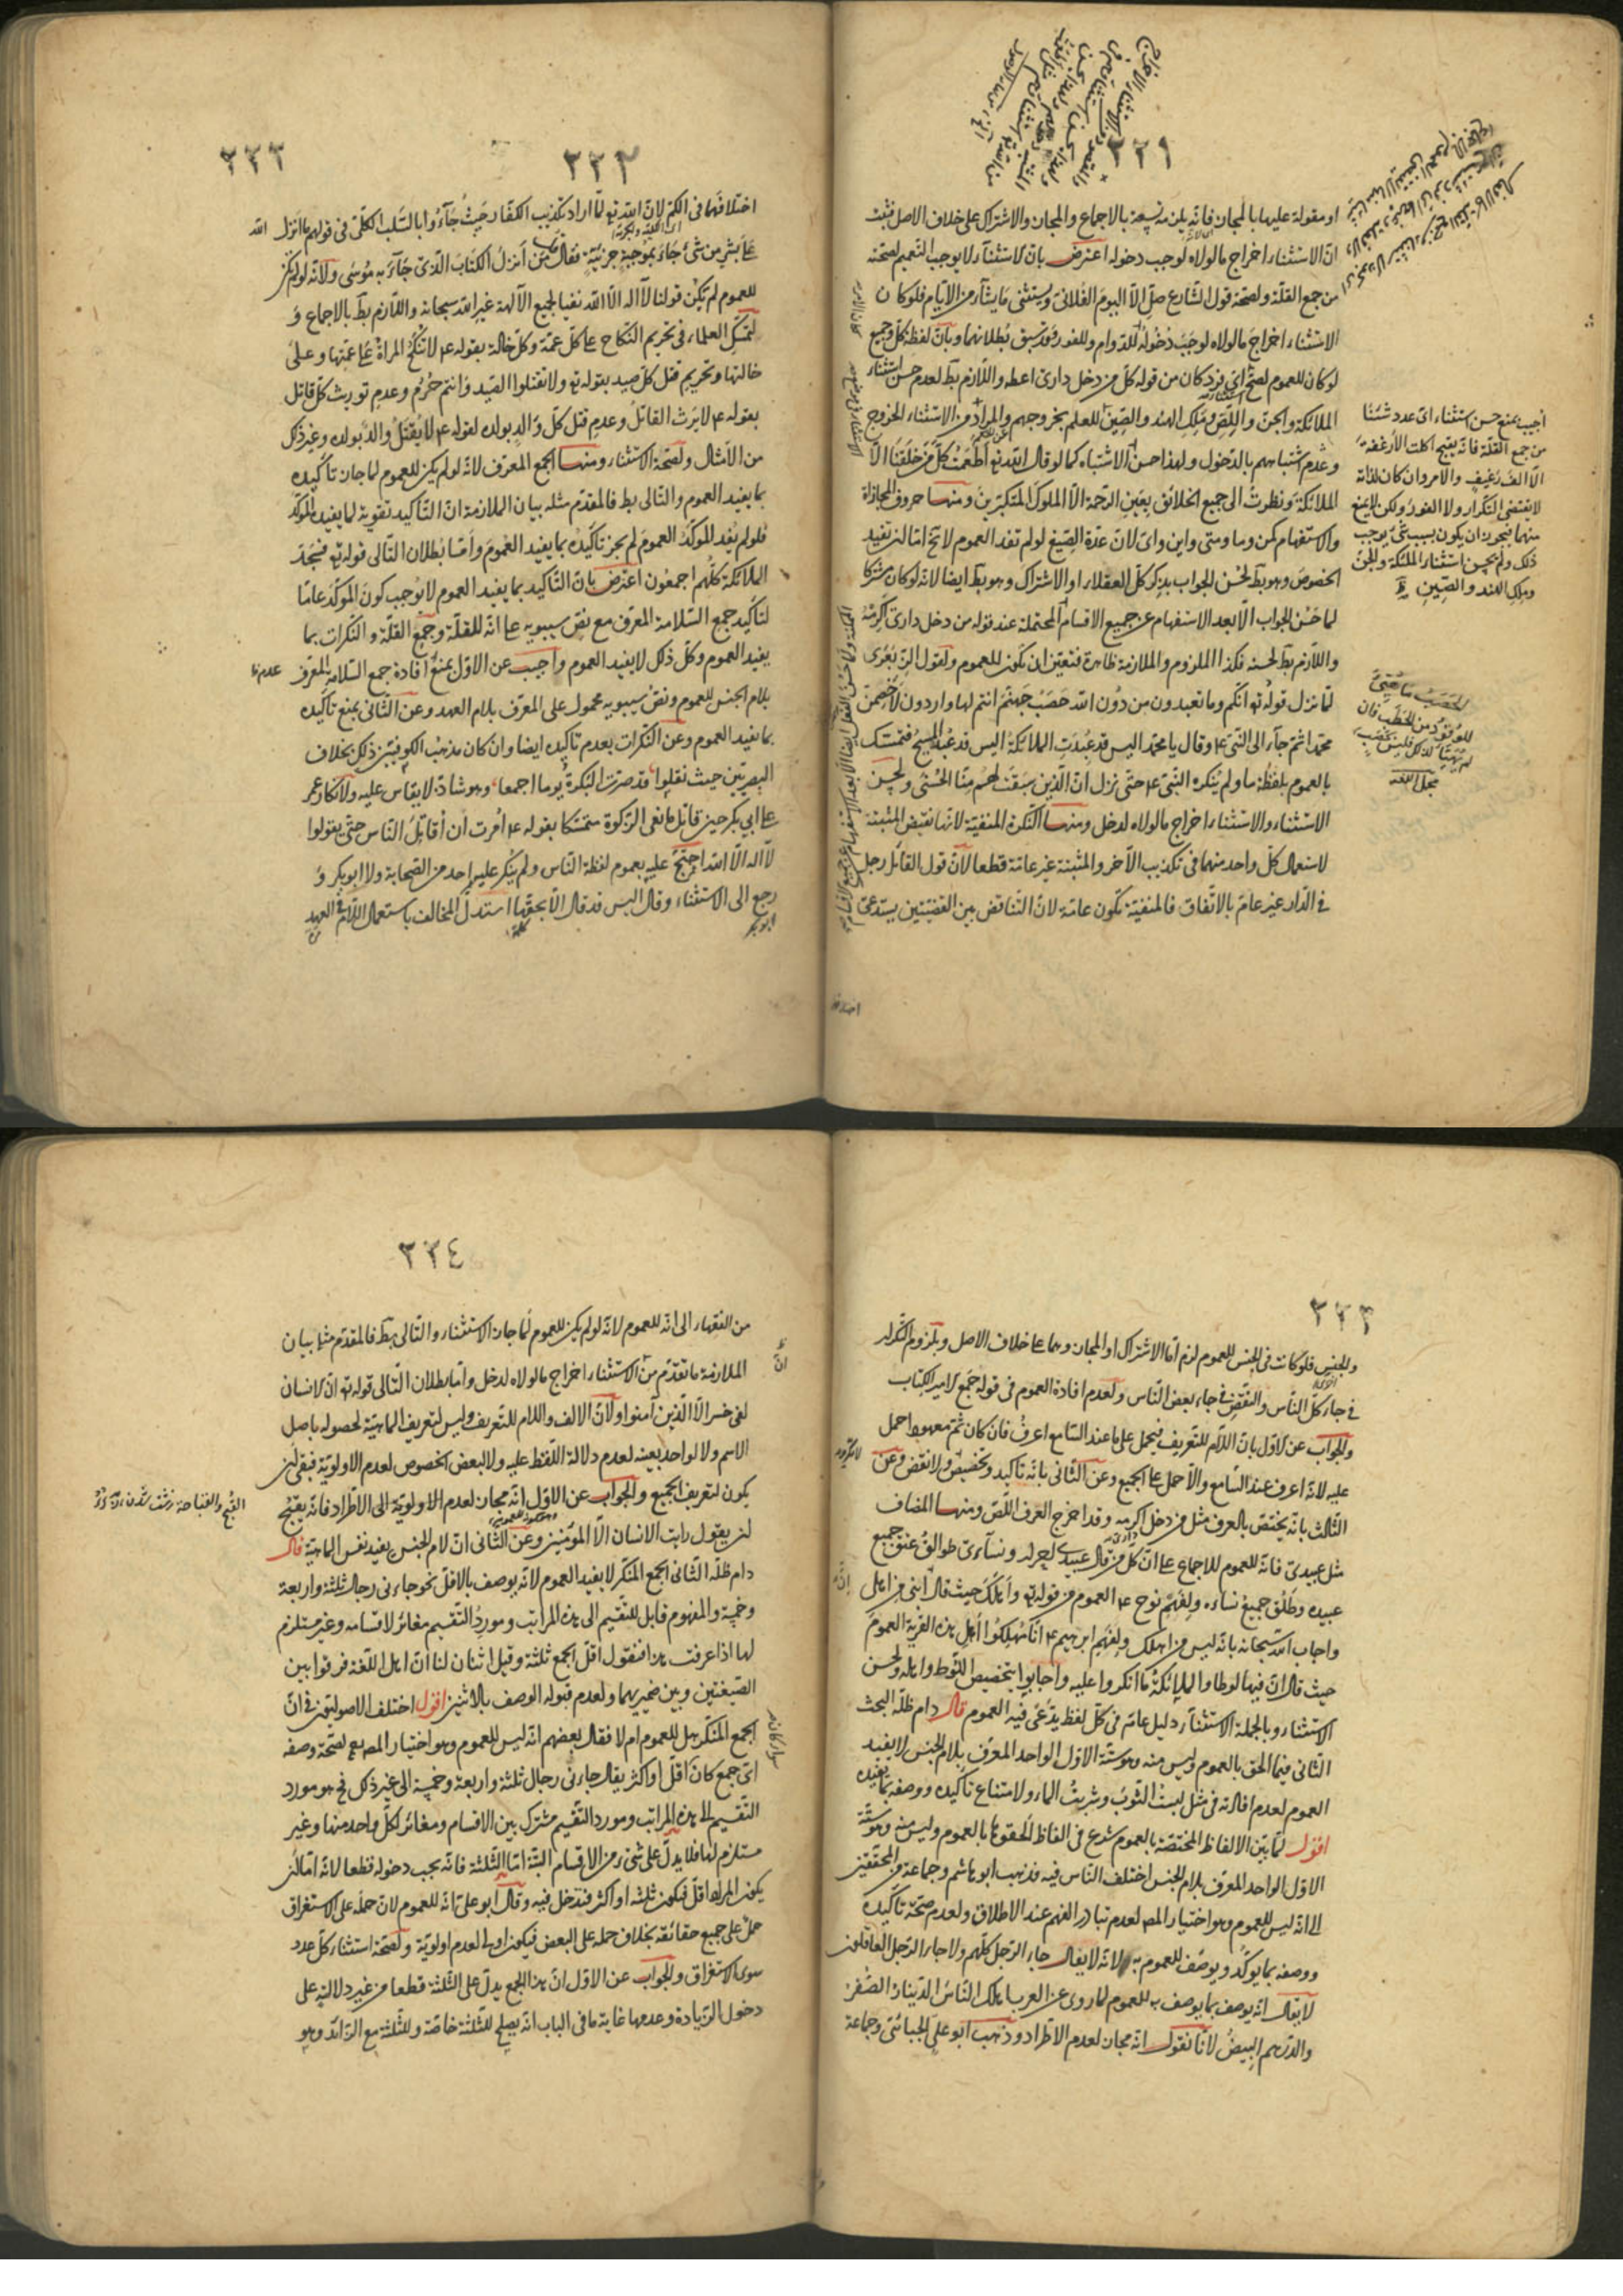 ٢٢١
او مقولة عليها بالمجاز فانه يلزمه نسخه بالاجماع والمجاز والاشتراك على خلاف الاصل فثبت
انّ الاستثناء اخراج مالولاه لوجب دخوله اعترض بان الاستثناء لا يوجب التعميم لصحته
من جمع القلّة ولصحة قول الشارع صلّ الّا اليوم الفلانى ويستثنى ما يشآء من الايّام فلو كان
الاستثناء اخراج مالولاه لوجب دخوله للدّوام وللفور وقد سبق بُطلانهما وبانّ لفظة كلّ وجميع
لو كان للعموم لصحّ اىّ فرد كان من قوله كلّ من دخل دارى اعطه واللّازم بط لعدم حسن استثناء
الملائكة والجن واللّص وملك الهند والصين للعلم بخروجهم والمراد من الاستثناء الخروج
وعدم اشتباههم بالدّخول ولهذا حسن الاشتباه كما لو قال الله تع اطعمت كلّ من خلقنا الّا
الملائكة ونظرت الى جميع الخلائق بعين الرّحمة الّا الملوك المتكبّرين ومنها حروف المجازاة
والاستفهام كمن وما ومتى واين واىّ لانّ عدّة الصّيغ لو لم تفد العموم لا تخ امّا ان تفيد
الخصوص وهو بط لحُسن الجواب بذكر كلّ العقلاء او الاشتراك وهو بط ايضا لانه لو كان مشتركا
لما حَسُن الجواب الّا بعد الاستفهام عن جميع الاقسام المحتملة عند قوله من دخل دارى اكرمته
واللّازم بط لحسنه فكذا الملزوم والملازمة ظاهرة فتعيّن ان تكون للعموم ولقول ابن الزِّبَعْرى
لمّا نزل قوله تع انّكم وما تعبدون من دُون الله حَصَبُ جهنّم انتم لها واردون لاَخْصِمَنّ
محمّدا ثمّ جآء الى النّبى ع م وقال يا محمّد اليس قد عُبِدَتِ الملائكةُ اليس قد عُبِدَ المسيح فتمسّك
بالعموم بلفظة ما ولم ينكره النبى ع م حتّى نزل انّ الّذين سبقت لهم منّا الحُسنى ولحسن
الاستثناء والاستثناء اخراج مالولاه لدخل ومنها النّكرة المنفيّة لانّها نقيض المثبتة
لاستعمال كلّ واحد منهما فى تكذيب الآخر والمثبتة غير عامّة قطعا لانّ قول القائل رجل
فى الدّار غير عامّ بالاتّفاق فالمنفيّة تكون عامّة لانّ التّناقض بين القضيّتين يستدعى
اجيب بمنع حسن استثناء اىّ عدد شئنا
من جمع القلّة فانّه يقبح اكلت الارغفة
الّا الف رغيف والامر وان كان لذاته
لا يقتضى التّكرار ولا الفور ولكن لا يمنع
منهما فيجوز ان يكون بسبب شىء يوجب
ذلك ولم يحسن استثناء الملئكة والجنّ
وملك الهند والصّين
الحصب ما هُيِّئَ
للوقود من الحطب فان
لم يُهيّأ لذلك فليس بحصب
مجمل اللغة
٢٢٢
٢٢٢
اختلافهما فى الكمّ لانّ الله تع لمّا اراد تكذيب الكفّار حيث جآءوا بالسّلب الكلّى فى قولهم ما انزل الله
على بشر من شىء جاء بموجبة جزئيّة فقال من انزل الكتاب الّذى جآء به موسى ولانّه لو لم يكن
للعموم لم يكن قولنا لا اله الّا الله نفيا لجميع الآلهة غير الله سبحانه واللّازم بط بالاجماع و
لتمسّك العلماء فى تحريم النّكاح على كلّ عمّة وكلّ خالة بقوله ع م لا تنكح المراة على عمّتها وعلى
خالتها وتحريم قتل كلّ صيد بقوله تع ولا تقتلوا الصّيد وانتم حُرُم وعدم توريث كلّ قاتل
بقوله ع م لا يرث القاتل وعدم قتل كلّ والد بولده لقوله ع م لا يُقتل والد بولده وغير ذلك
من الامثال ولصحّة الاستثناء ومنها الجمع المعرّف لانّه لو لم يكن للعموم لما جاز تاكيده
بما يفيد العموم والتّالى بط فالمقدّم مثله بيان الملازمة انّ التّاكيد تقوية لما يفيد المؤكّد
فلو لم يُفد المؤكّد العموم لم يجز تاكيده بما يفيد العموم وامّا بُطلان التّالى قوله تع فسجد
الملائكة كلّهم اجمعون اعترض بانّ التّاكيد بما يفيد العموم لا يوجب كون المؤكّد عامّا
لتاكيد جمع السّلامة المعرّف مع نصّ سيبويه على انّه للقلّة وجمع القلّة والنّكرات بما
يفيد العموم وكلّ ذلك لا يفيد العموم واجيب عن الاوّل بمنع عدم افادة جمع السّلامة المعرّف
بلام الجنس للعموم ونصّ سيبويه محمول على المعرّف بلام العهد وعن الثّانى بمنع تاكيده
بما يفيد العموم وعن النّكرات بعدم تاكيده ايضا وان كان مذهب الكوفيّين ذلك بخلاف
البصريّين حيث نقلوا قد صرّت البكرة يوما اجمعا وهو شاذّ لا يقاس عليه ولانكار عمر
على ابى بكر حين قاتل مانعى الزّكوة متمسّكا بقوله ع م أُمرت أن أقاتل النّاس حتّى يقولوا
لا اله الّا الله احتجّ عليه بعموم لفظة النّاس ولم ينكر عليه احد من الصّحابة ولا ابو بكر و
رجع الى الاستثناء وقال اليس قد قال الّا بحقّها استدلّ المخالف باستعمال اللّام فى العهد
٢٢٣
وللجنس فلو كانت فى الجنس للعموم لزم امّا الاشتراك او المجاز وهما على خلاف الاصل وبلزوم التّكرار
فى جاء كلّ النّاس والنّقض فى جاء بعض النّاس ولعدم افادة العموم فى قوله جمع الامير الكتاب
والجواب عن الاوّل بانّ اللّام للتّعريف فيحمل على ما عند السّامع اعرف فان كان ثمّ معهود احمل
عليه لانّه اعرف عند السّامع والّا حمل على الجميع وعن الثّانى بانّه تاكيد وتخصيص ولا نقض وعن
الثّالث بانّه يختصّ بالعرف مثل من دخل اكرمه وقد اخرج العرف اللّص ومنها المضاف
مثل عبيدى فانّه للعموم للاجماع على انّ كلّ من قال عبيدى احرار ونسآءى طوالق عتق جميع
عبيده وطلّق جميع نساءه ولفهم نوح ع م العموم من قوله تع واهلك حيث قال انّ ابنى من اهلى
واجاب الله سبحانه بانّه ليس من اهلك ولفهم ابرهيم ع م انّا مهلكوا اهل هذه القرية العموم
حيث قال انّ فيها لوطا والملائكة ما انكروا عليه واجابوا بتخصيص اللّوط واهله ولحسن
الاستثناء وبالجملة الاستثنآء دليل عامّ فى كلّ لفظ يدّعى فيه العموم قال دام ظلّه البحث
الثّانى فيما الحق بالعموم وليس منه وهو ستّة الاوّل الواحد المعرّف بلام الجنس لا يفيد
العموم لعدم افادته فى مثل لبست الثّوب وشربت الماء ولامتناع تاكيده ووصفه بما يفيده
اقول لمّا بيّن الالفاظ المختصّة بالعموم شرع فى الفاظ الحقوها بالعموم وليس منه وهو ستّة
الاوّل الواحد المعرّف بلام الجنس اختلف النّاس فيه فذهب ابو هاشم وجماعة من المحقّقين
الى انّه ليس للعموم وهو اختيار المص لعدم تبادر الفهم عند الاطلاق ولعدم صحّة تاكيده
ووصفه بما يؤكّد ويوصف للعموم به لانّه لا يقال جاء الرّجل كلّهم ولا جاء الرّجل العاقلون
لا يقال انّه يوصف بما يوصف به للعموم لما روى عن العرب اهلك النّاس الدّينار الصّفر
والدّرهم البيض لانّا نقول انّه مجاز لعدم الاطّراد وذهب ابو على الجبائى وجماعة
٢٢٤
من الفقهاء الى انّه للعموم لانّه لو لم يكن للعموم لما جاز الاستثناء والتّالى بط فالمقدّم مثله بيان
الملازمة ما تقدّم من انّ الاستثناء اخراج مالولاه لدخل وامّا بطلان التّالى قوله تع انّ الانسان
لفى خسر الّا الّذين آمنوا ولانّ الالف واللام للتّعريف وليس لتعريف الماهيّة لحصوله باصل
الاسم ولا لواحد بعينه لعدم دلالة اللّفظ عليه ولا لبعض الخصوص لعدم الاولويّة فبقى ان
يكون لتعريف الجميع والجواب عن الاوّل انّه مجاز لعدم الاولويّة الى الاطّراد فانّه يقبح
ان يقول رايت الانسان الّا المؤمنين وعن الثّانى انّ لام الجنس يفيد نفس الماهيّة قال
دام ظلّه الثّانى الجمع المنكّر لا يفيد العموم لانّه يوصف بالاقلّ نحو جاءنى رجال ثلثة واربعة
وخمسة والمفهوم قابل للتّقسيم الى هذه المراتب ومورد التّقسيم مغائر لاقسامه وغير مستلزم
لها اذا عرفت هذا فنقول اقلّ الجمع ثلثة وقيل اثنان لنا انّ اهل اللّغة فرقوا بين
الصّيغتين وبين ضميريهما ولعدم قبوله الوصف بالاثنين اقول اختلف الاصوليّون فى انّ
الجمع المنكّر هل للعموم ام لا فقال بعضهم انّه ليس للعموم وهو اختيار المص لصحّة وصفه
اىّ جمع كان اقلّ او اكثر يقال جاءنى رجال ثلثة واربعة وخمسة الى غير ذلك فهو مورد
التّقسيم الى هذه المراتب ومورد التّقسيم مشترك بين الاقسام ومغائر لكلّ واحد منها وغير
مستلزم لها فلا يدلّ على شىء من الاقسام البتّة امّا الثّلثة فانّه يجب دخوله قطعا لانّه امّا ان
يكون المراد اقلّ فيكون ثلثة او اكثر فتدخل فيه وقال ابو على انّه للعموم لانّ حمله على الاستغراق
حمل على جميع حقائقه بخلاف حمله على البعض فيكون اولى لعدم اولويّة ولصحّة استثناء كلّ عدد
سوى الاستغراق والجواب عن الاوّل انّ هذا الجمع يدلّ على الثّلثة قطعا من غير دلالته على
دخول الزّيادة وعدمها غاية ما فى الباب انّه يصلح للثّلثة خاصّة وللثّلثة مع الزّائد وهو